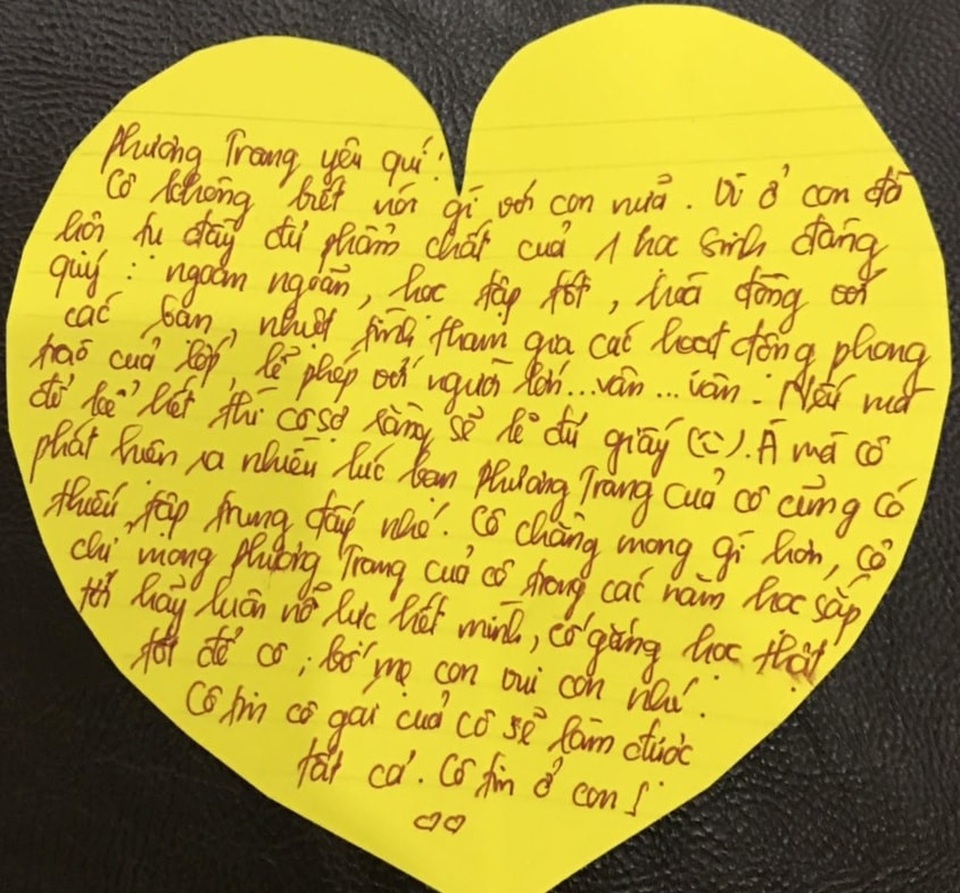 Phương Trang yêu quí!
Cô không biết nói gì với con nữa. Vì ở con đã
hội tụ đầy đủ phẩm chất của 1 học sinh đáng
quý: ngoan ngoãn, học tập tốt, hoà đồng với
các bạn, nhiệt tình tham gia các hoạt động phong
trào của lớp, lễ phép với người lớn...vân...vân. Nếu mà
để kể hết thì cô sợ rằng sẽ k đủ giấy (ü). À mà cô
phát hiện ra nhiều lúc bạn Phương Trang của cô cũng có
thiếu tập trung đấy nhé. Cô chẳng mong gì hơn, cô
chỉ mong Phương Trang của cô trong các năm học sắp
tới hãy luôn nỗ lực hết mình, cố gắng học thật
tốt để cô, bố mẹ con vui con nhé.
Cô tin cô gái của cô sẽ làm được
tất cả. Cô tin ở con!